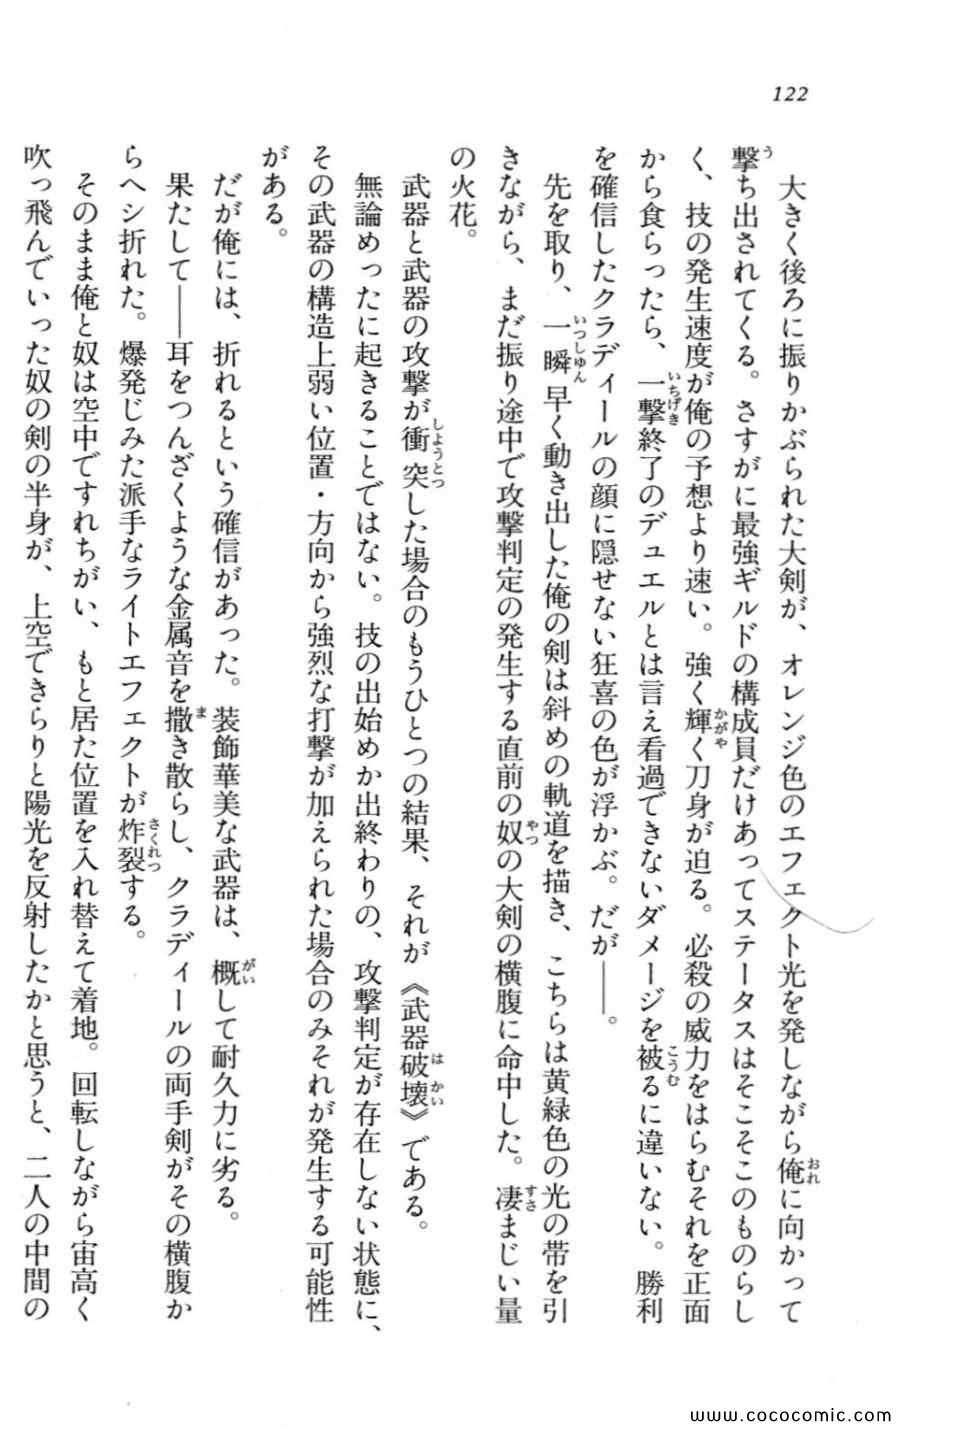 122
大きく後ろに振りかぶられた大剣が、オレンジ色のエフェクト光を発しながら俺に向かって
撃ち出されてくる。さすがに最強ギルドの構成員だけあってステータスはそこそこのものらし
く、技の発生速度が俺の予想より速い。強く輝く刀身が迫る。必殺の威力をはらむそれを正面
から食らったら、一撃終了のデュエルとは言え看過できないダメージを被るに違いない。勝利
を確信したクラディールの顔に隠せない狂喜の色が浮かぶ。だが――。
先を取り、一瞬早く動き出した俺の剣は斜めの軌道を描き、こちらは黄緑色の光の帯を引
きながら、まだ振り途中で攻撃判定の発生する直前の奴の大剣の横腹に命中した。凄まじい量
の火花。
武器と武器の攻撃が衝突した場合のもうひとつの結果、それが《武器破壊》である。
無論めったに起きることではない。技の出始めか出終わりの、攻撃判定が存在しない状態に、
その武器の構造上弱い位置・方向から強烈な打撃が加えられた場合のみそれが発生する可能性
がある。
だが俺には、折れるという確信があった。装飾華美な武器は、概して耐久力に劣る。
果たして――耳をつんざくような金属音を撒き散らし、クラディールの両手剣がその横腹か
らヘシ折れた。爆発じみた派手なライトエフェクトが炸裂する。
そのまま俺と奴は空中ですれちがい、もと居た位置を入れ替えて着地。回転しながら宙高く
吹っ飛んでいった奴の剣の半身が、上空できらりと陽光を反射したかと思うと、二人の中間の
www.cococomic.com